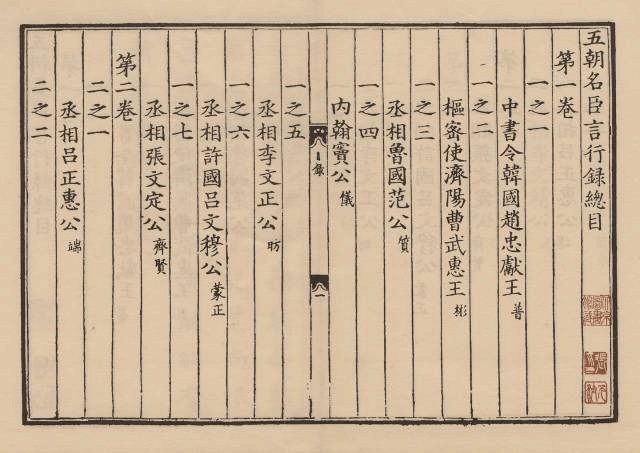 五朝名臣言行録總目
第一卷
一之一
中書令韓國趙忠獻王 普
一之二
樞密使濟陽曹武惠王 彬
一之三
丞相魯國范公 質
一之四
内翰竇公 儀
一之五
丞相李文正公 昉
一之六
丞相許國吕文穆公 蒙正
一之七
丞相張文定公 齊賢
第二卷
二之一
丞相吕正惠公 端
二之二